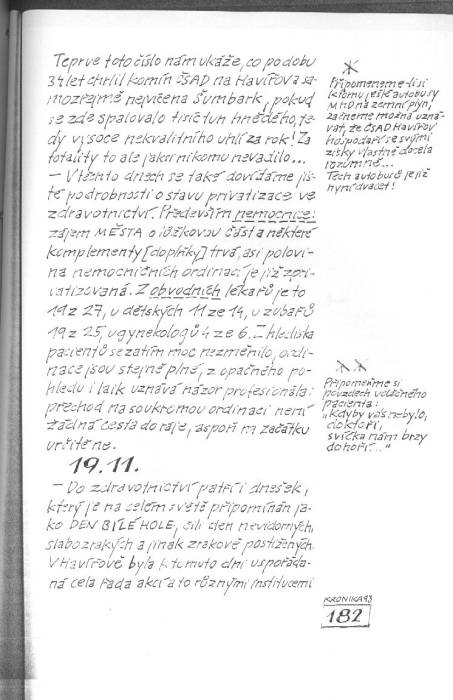 Teprve toto číslo nám ukáže, co po dobu
34 let chrlil komín ČSAD na Havířova sa-
mozřejmě nejvíce na Šumbark, pokud
se zde spalovalo tisíc tun hnědého, te-
dy vysoce nekvalitního uhlí za rok! Za
totality to ale jaksi nikomu nevadilo...
– V těchto dnech se také dovídáme jis-
té podrobnosti o stavu privatizace ve
zdravotnictví. Především nemocnice:
zájem MĚSTA o lůžkovou část a některé
komplementy [doplňky] trvá, asi polovi-
na nemocničních ordinací je již zpri-
vatizovaná. Z obvodních lékařů je to
19 z 27, u dětských 11 ze 14, u zubařů
19 z 25, u gynekologů 4 ze 6. Z hlediska
pacientů se zatím moc nezměnilo, ordi-
nace jsou stejně plné, z opačného po-
hledu i laik uznává názor profesionála:
přechod na soukromou ordinaci není
žádná cesta do ráje, aspoň na začátku
určitě ne.
19.11.
– Do zdravotnictví patří i dnešek,
který je na celém světě připomínán ja-
ko DEN BÍLÉ HOLE, čili den nevidomých,
slabozrakých a jinak zrakově postižených.
V Havířově byla k tomuto dni uspořádá-
ná celá řada akcí a to různými institucemi
Připomeneme-li si
k tomu ještě autobusy
MHD na zemní plyn,
začneme možná uzná-
vat, že ČSAD Havířov
hospodaří se svými
zisky vlastně docela
rozumně...
Těch autobusů je již
nyní dvacet!
Připomeňme si
povzdech vděčného
pacienta:
"Kdyby vás nebylo,
doktoři,
svíčka nám brzy
dohoří..."
KRONIKA 93
182